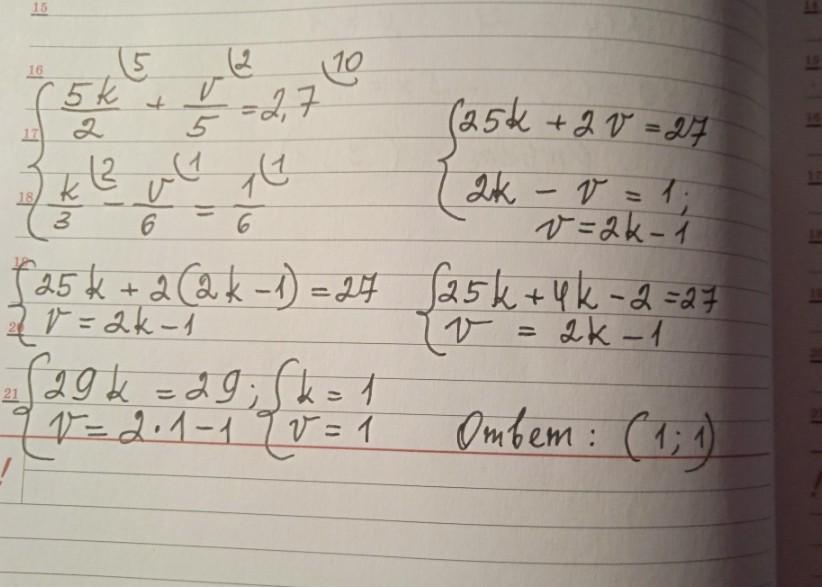 15
16
5k/2 (5 + v/5 (2 = 2,7 (10
17
k/3 (2 - v/6 (1 = 1/6 (1
18
25k + 2v = 27
2k - v = 1;
v = 2k - 1
19
25k + 2(2k - 1) = 27
v = 2k - 1
20
25k + 4k - 2 = 27
v = 2k - 1
21
29k = 29; k = 1
v = 2·1 - 1 v = 1
Ответ: (1; 1)
!